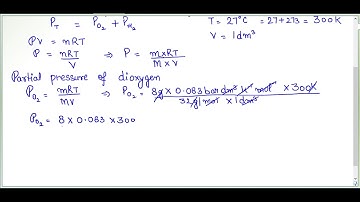 P_T = P_O2 + P_H2
T = 27°C = 27+273 = 300K
PV = nRT
V = 1dm³
P = nRT/V ⇒ P = m×RT/M×V
Partial pressure of dioxygen
P_O2 = mRT/MV ⇒ P_O2 = 8g × 0.083 bar dm³ K⁻¹ mol⁻¹ × 300K / 32g/mol × 1dm³
P_O2 = 8 × 0.083 × 300